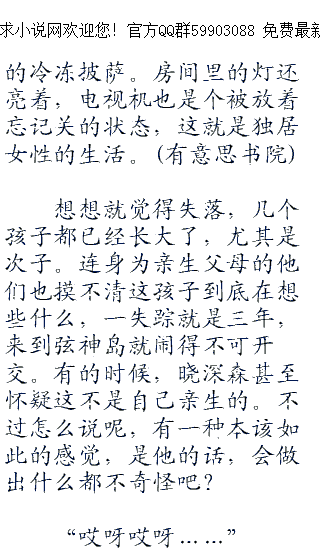 求小说网欢迎您！官方QQ群59903088 免费最新
的冷冻披萨。房间里的灯还
亮着，电视机也是个被放着
忘记关的状态，这就是独居
女性的生活。(有意思书院)
想想就觉得失落，几个
孩子都已经长大了，尤其是
次子。连身为亲生父母的他
们也摸不清这孩子到底在想
些什么，一失踪就是三年，
来到弦神岛就闹得不可开
交。有的时候，晓深森甚至
怀疑这不是自己亲生的。不
过怎么说呢，有一种本该如
此的感觉，是他的话，会做
出什么都不奇怪吧？
“哎呀哎呀……”